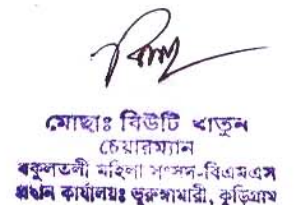 মোছাঃ বিউটি খাতুন
চেয়ারম্যান
বকুলতলী মহিলা সংসদ-বিএমএস
প্রধান কার্যালয়ঃ ভুরুঙ্গামারী, কুড়িগ্রাম